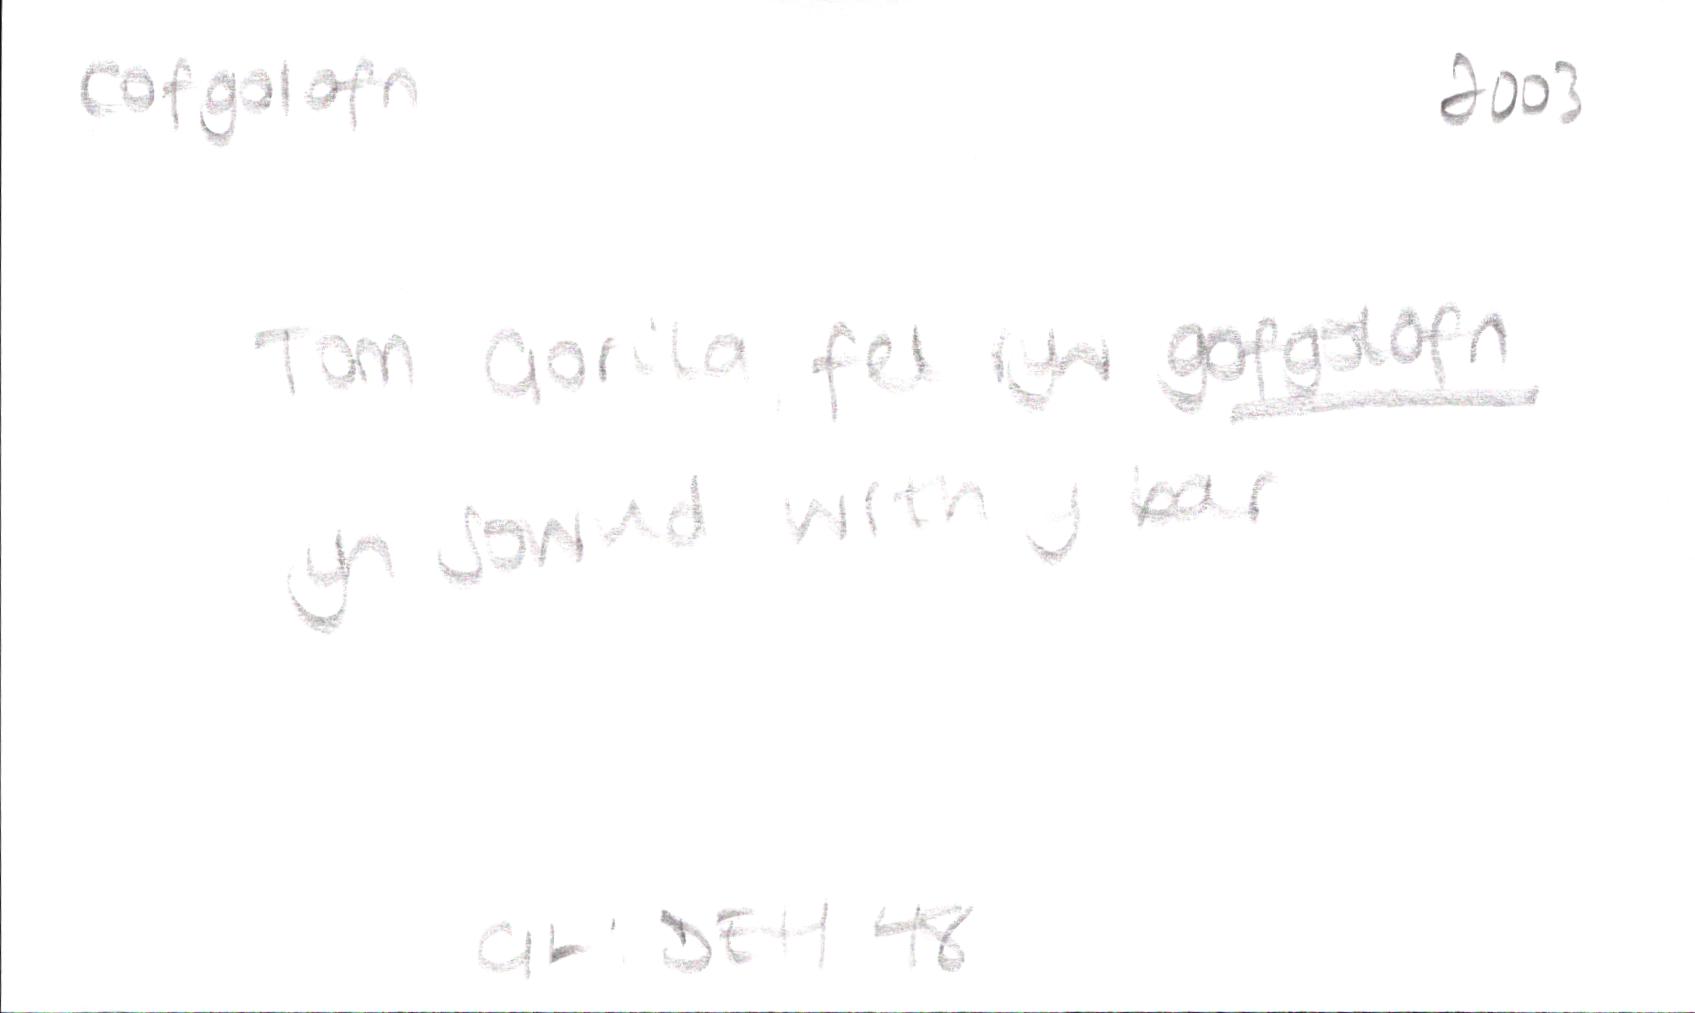 cofgolofn 2003
Tom Gorila fel ryw gofgolofn
yn sownd wrth y bar
GL: DEH 48